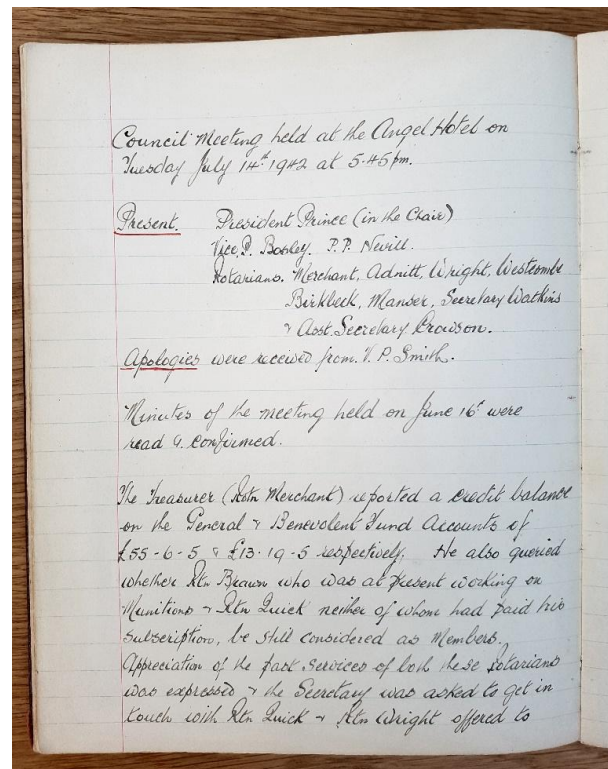 Council Meeting held at the Angel Hotel on
Tuesday July 14th 1942 at 5.45 pm.
Present. President Prince (in the Chair)
Vice P. Bosley. P.P. Nevill.
Rotarians. Merchant, Adnitt, Wright, Westcombe
Birkbeck, Manser, Secretary Watkins
& Asst. Secretary Crowson.
Apologies were received from V. P. Smith.
Minutes of the meeting held on June 16th were
read & confirmed.
The Treasurer (Rotn Merchant) reported a credit balance
on the General & Benevolent Fund Accounts of
£55-6-5 & £13-19-5 respectively. He also queried
whether Rtn Brawn who was at present working on
Munitions & Rtn Quick neither of whom had paid his
subscription, be still considered as Members.
Appreciation of the past services of both these Rotarians
was expressed & the Secretary was asked to get in
touch with Rtn Quick & Rtn Wright offered to